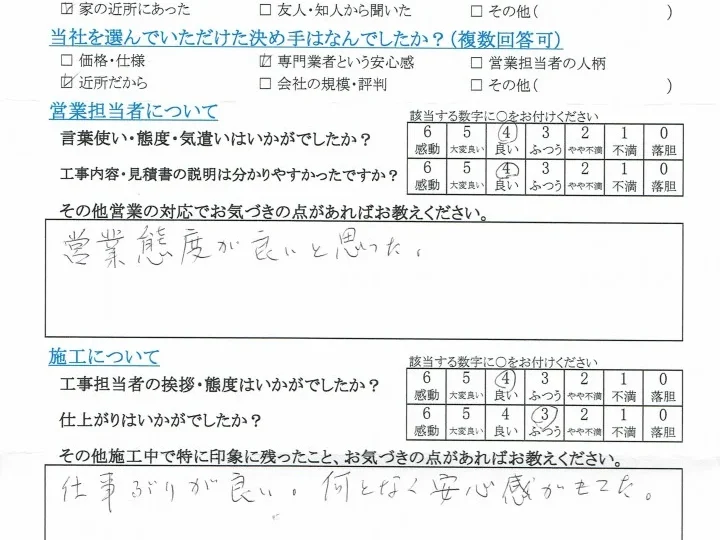 ☑ 家の近所にあった □ 友人・知人から聞いた □ その他( )
当社を選んでいただけた決め手はなんでしたか？(複数回答可)
□ 価格・仕様 ☑ 専門業者という安心感 □ 営業担当者の人柄
☑ 近所だから □ 会社の規模・評判 □ その他( )
営業担当者について
該当する数字に○をお付けください
言葉使い・態度・気遣いはいかがでしたか？
6 5 4 3 2 1 0
感動 大変良い 良い ふつう やや不満 不満 落胆
工事内容・見積書の説明は分かりやすかったですか？
6 5 4 3 2 1 0
感動 大変良い 良い ふつう やや不満 不満 落胆
その他営業の対応でお気づきの点があればお教えください。
営業態度が良いと思った。
施工について
該当する数字に○をお付けください
工事担当者の挨拶・態度はいかがでしたか？
6 5 4 3 2 1 0
感動 大変良い 良い ふつう やや不満 不満 落胆
仕上がりはいかがでしたか？
6 5 4 3 2 1 0
感動 大変良い 良い ふつう やや不満 不満 落胆
その他施工中で特に印象に残ったこと、お気づきの点があればお教えください。
仕事ぶりが良い。何となく安心感がもてた。